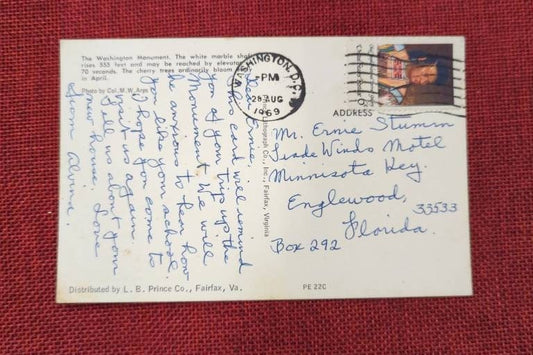 The Washington Monument. The white marble shaft
rises 555 feet and may be reached by elevator
70 seconds. The cherry trees ordinarily bloom
in April.
Photo by Col. M. W. Arps
Dear Ernie,
This card will remind
you of your trip up the
Monument. We will
be anxious to hear how
you like your school.
I hope you come to
visit us again.
Tell us about your
new house. Love
from Alvina.
WASHINGTON, D.C.
PM
AUG
1969
ADDRESS
Mr. Ernie Sturison
Trade Winds Motel
Minnisota Key.
Englewood, 33533
Florida.
Box 292
Co., Inc., Fairfax, Virginia
Distributed by L. B. Prince Co., Fairfax, Va.
PE 22C